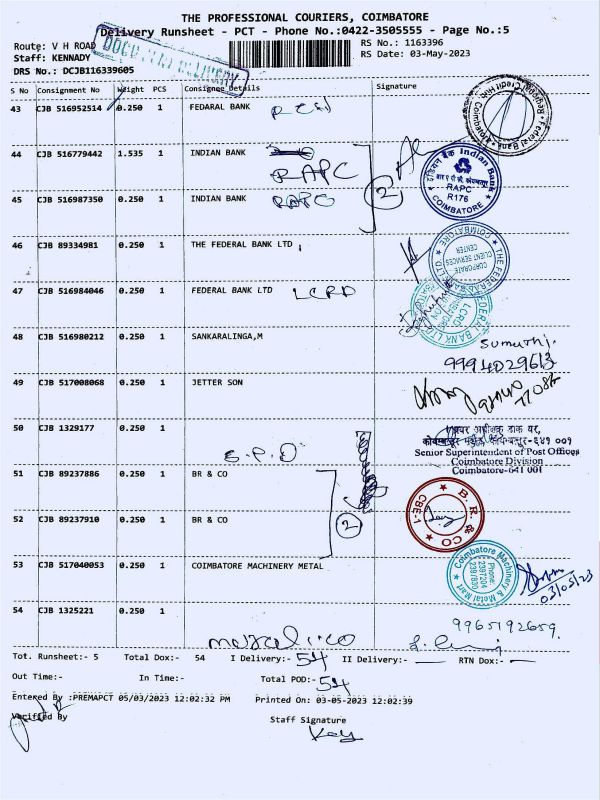 THE PROFESSIONAL COURIERS, COIMBATORE
Delivery Runsheet - PCT - Phone No.:0422-3505555 - Page No.:5
Route: V H ROAD
RS No.: 1163396
Staff: KENNADY
RS Date: 03-May-2023
DRS No.: DCJB116339605
S No Consignment No Weight PCS Consignee Details Signature
43 CJB 516952514 0.250 1 FEDARAL BANK
44 CJB 516779442 1.535 1 INDIAN BANK RAPC
इंडियन बैंक Indian Bank
RAPC
R176
COIMBATORE
45 CJB 516987350 0.250 1 INDIAN BANK RAPC
2
46 CJB 89334981 0.250 1 THE FEDERAL BANK LTD
THE FEDERAL BANK LTD
CORPORATE
CLIENT SERVICES
CENTER
COIMBATORE
47 CJB 516984046 0.250 1 FEDERAL BANK LTD LCRD
LCRD
48 CJB 516980212 0.250 1 SANKARALINGA,M
Sumathi.
9994029613
49 CJB 517008068 0.250 1 JETTER SON
50 CJB 1329177 0.250 1
S.P.O
Senior Superintendent of Post Offices
Coimbatore Division
Coimbatore-641 001
51 CJB 89237886 0.250 1 BR & CO
B. R. & CO
CBE-1
52 CJB 89237910 0.250 1 BR & CO
2
53 CJB 517040053 0.250 1 COIMBATORE MACHINERY METAL
Coimbatore Machinery & Metal Mart
Phone:
2397204
03/05/23
54 CJB 1325221 0.250 1
9965192659
Tot. Runsheet:- 5 Total Dox:- 54 I Delivery:- 54 II Delivery:- — RTN Dox:- —
Out Time:- In Time:- Total POD:- 54
Entered By :PREMAPCT 05/03/2023 12:02:32 PM Printed On: 03-05-2023 12:02:39
Verified By Staff Signature